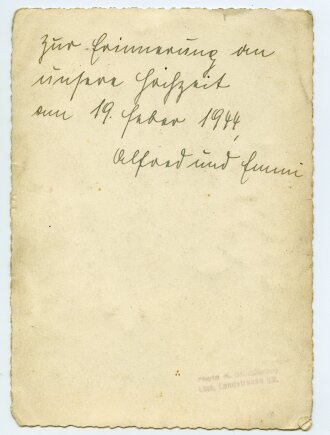 Zur Erinnerung an
unsere Hochzeit
am 19. Feber 1944,
Alfred und Emmi
Landstrasse